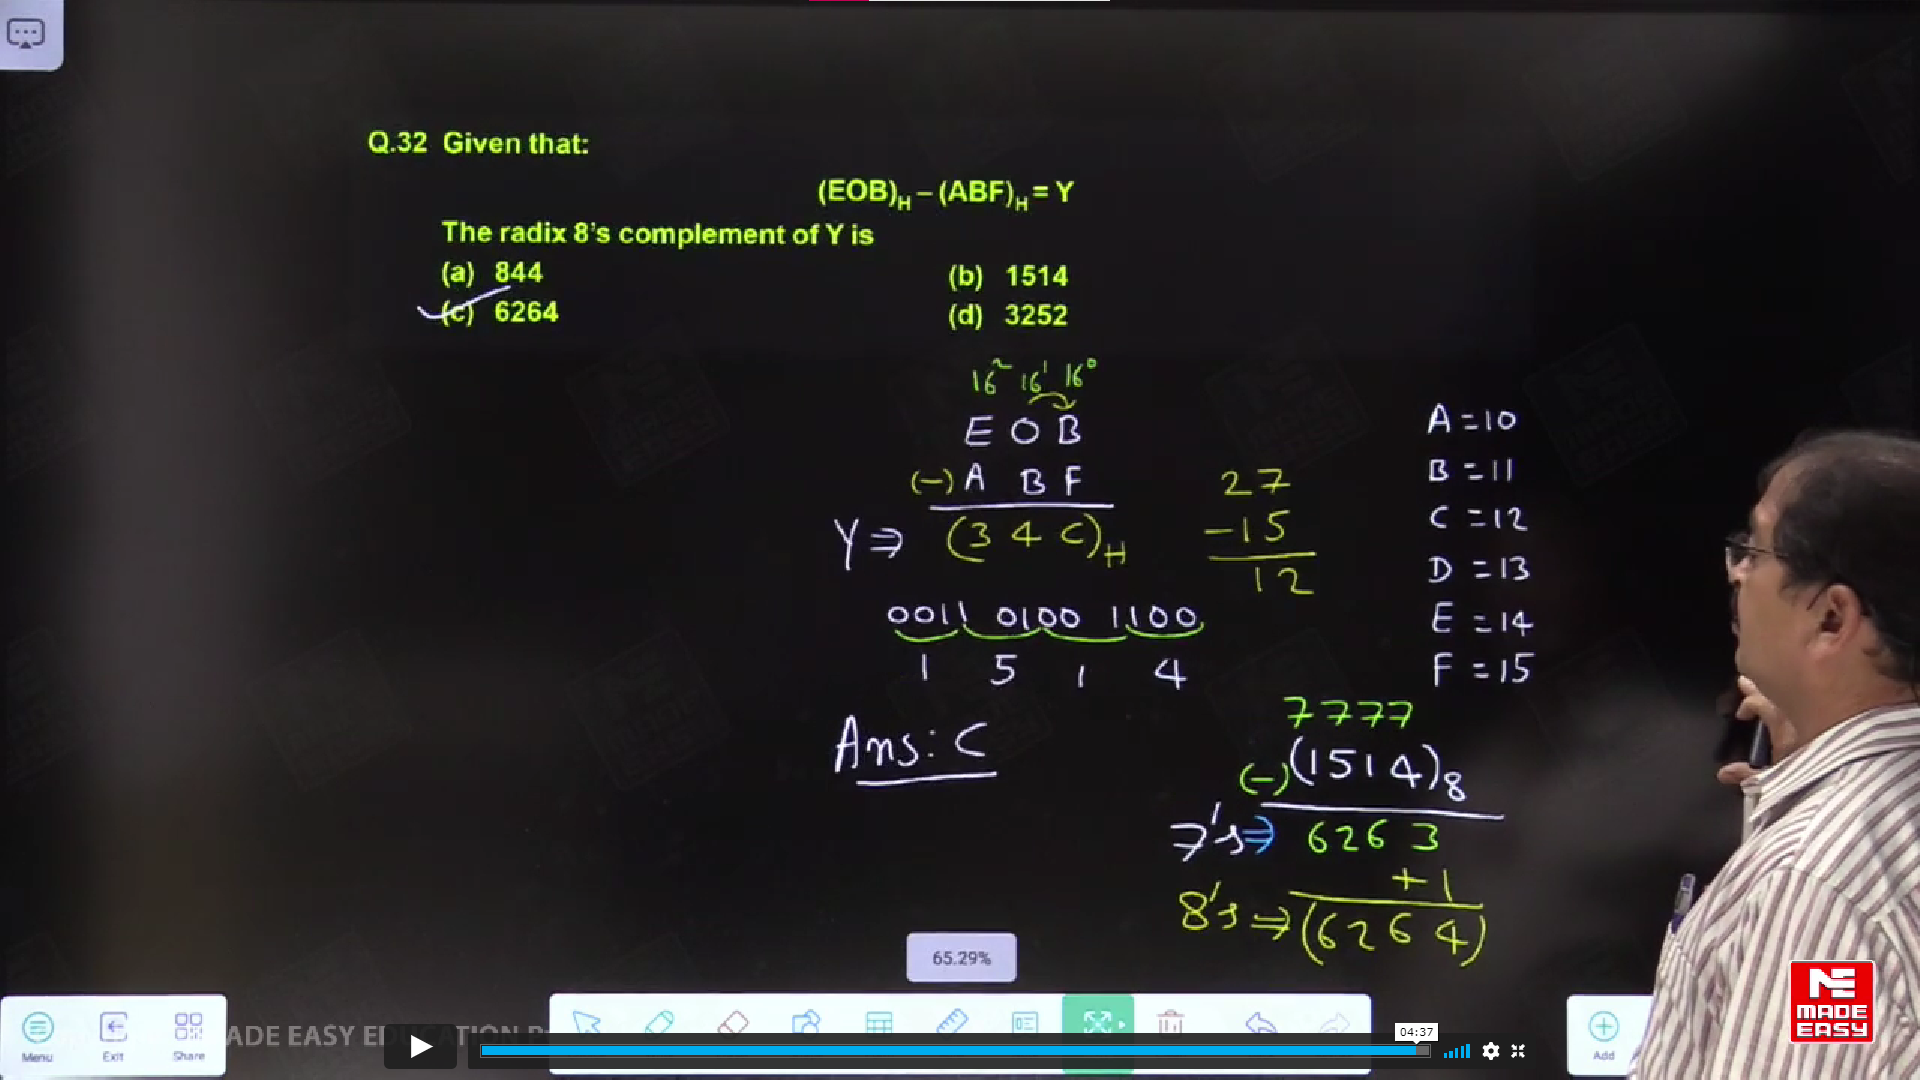 Q.32 Given that:
(EOB)H – (ABF)H = Y
The radix 8's complement of Y is
(a) 844
(b) 1514
(c) 6264
(d) 3252
16² 16¹ 16⁰
E O B
(−) A B F
Y ⇒ (3 4 C)H
27
−15
12
A = 10
B = 11
C = 12
D = 13
E = 14
F = 15
0011 0100 1100
1 5 1 4
Ans: C
7777
(−) (1514)8
7's ⇒ 6263
+1
8's ⇒ (6264)
65.29%
Menu
Exit
Share
ADE EASY EDUCATION P
04:37
Add
ME
MADE
EASY